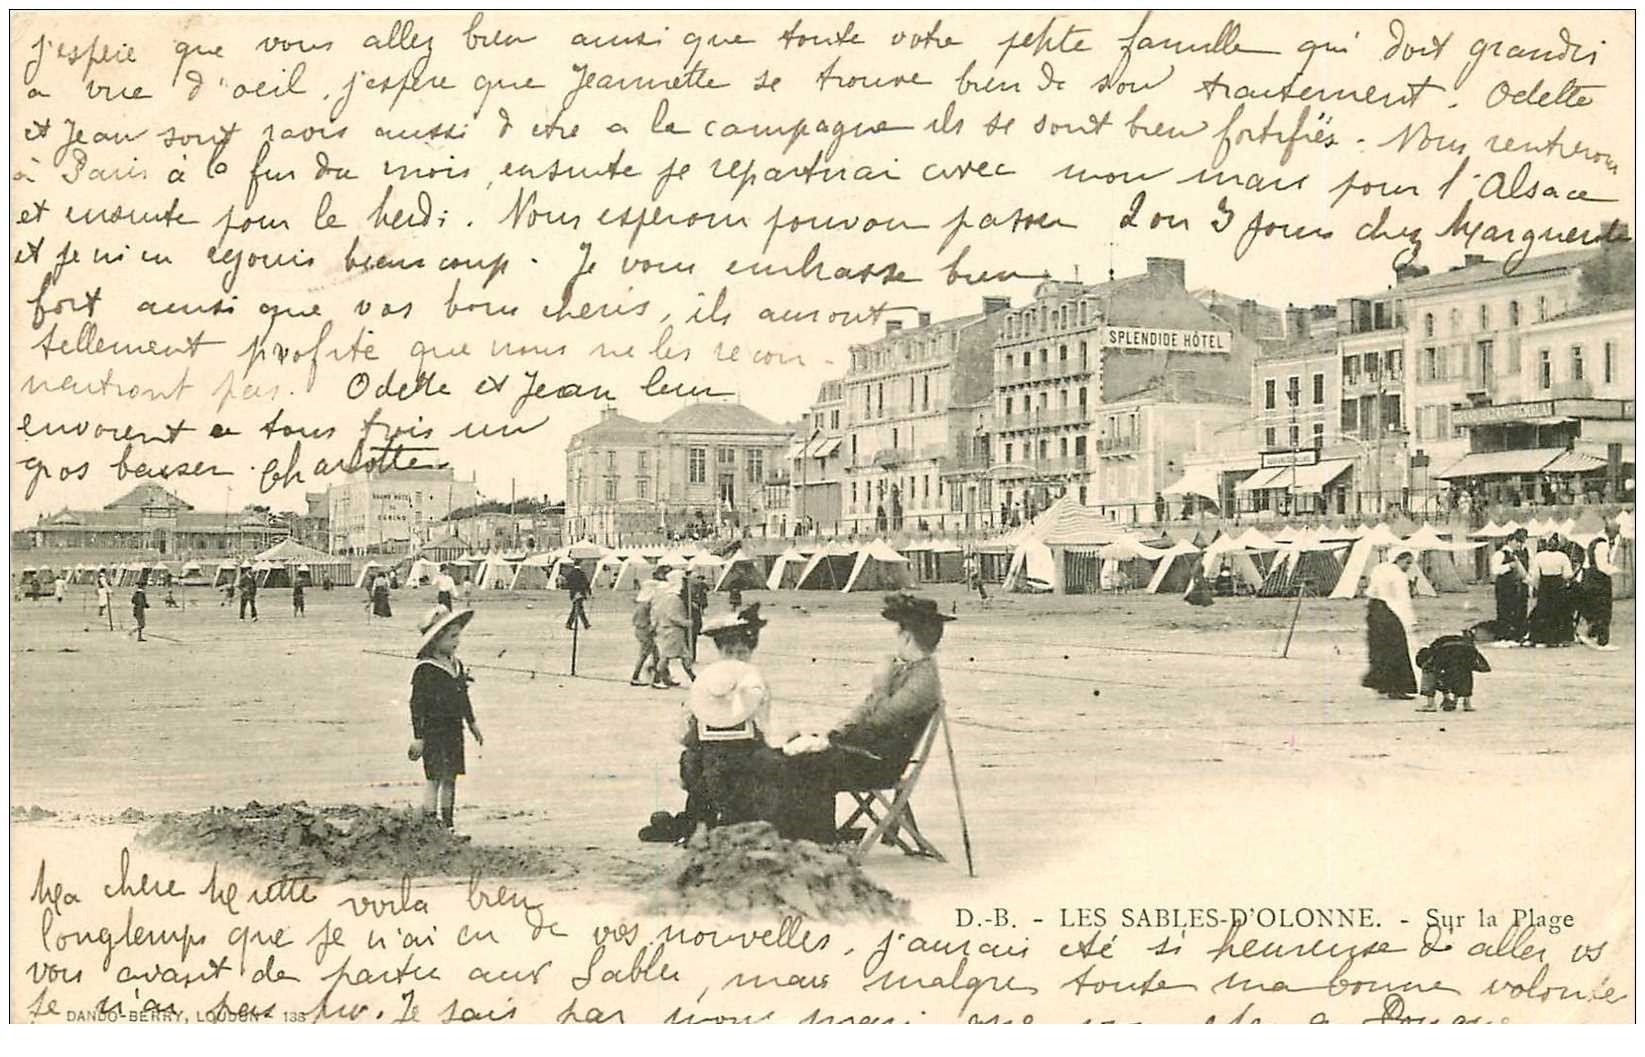 j'espère que vous allez bien ainsi que toute votre petite famille qui doit grandir
a vue d'oeil, j'espère que Jeannette se trouve bien de son traitement. Odette
et Jean sont ravis aussi d etre a la campagne ils se sont bien fortifiés. Nous rentrerons
à Paris à la fin du mois, ensuite je repartirai avec mon mari pour l'Alsace
et ensuite pour le . Nous esperons pouvoir passer 2 ou 3 jours chez Marguerite
et je m'en rejouis beaucoup. Je vous embrasse bien
fort ainsi que vos bons cheris, ils auront
tellement profité que nous ne les recon-
neutront pas. Odette et Jean leur
envoient a tous trois un
gros baiser. Charlotte
SPLENDIDE HÔTEL
GRAND HÔTEL
DU
CASINO
D.-B. - LES SABLES-D'OLONNE. - Sur la Plage
Ma chere voila bien
longtemps que je n'ai eu de vos nouvelles, j'aurais été si heureuse d aller vs
voir avant de partir aux Sables, mais malgre toute ma bonne volonte
je n'ai pas pu. Je sais par mon mari que
DANDO-BERRY, LOUDUN - 138